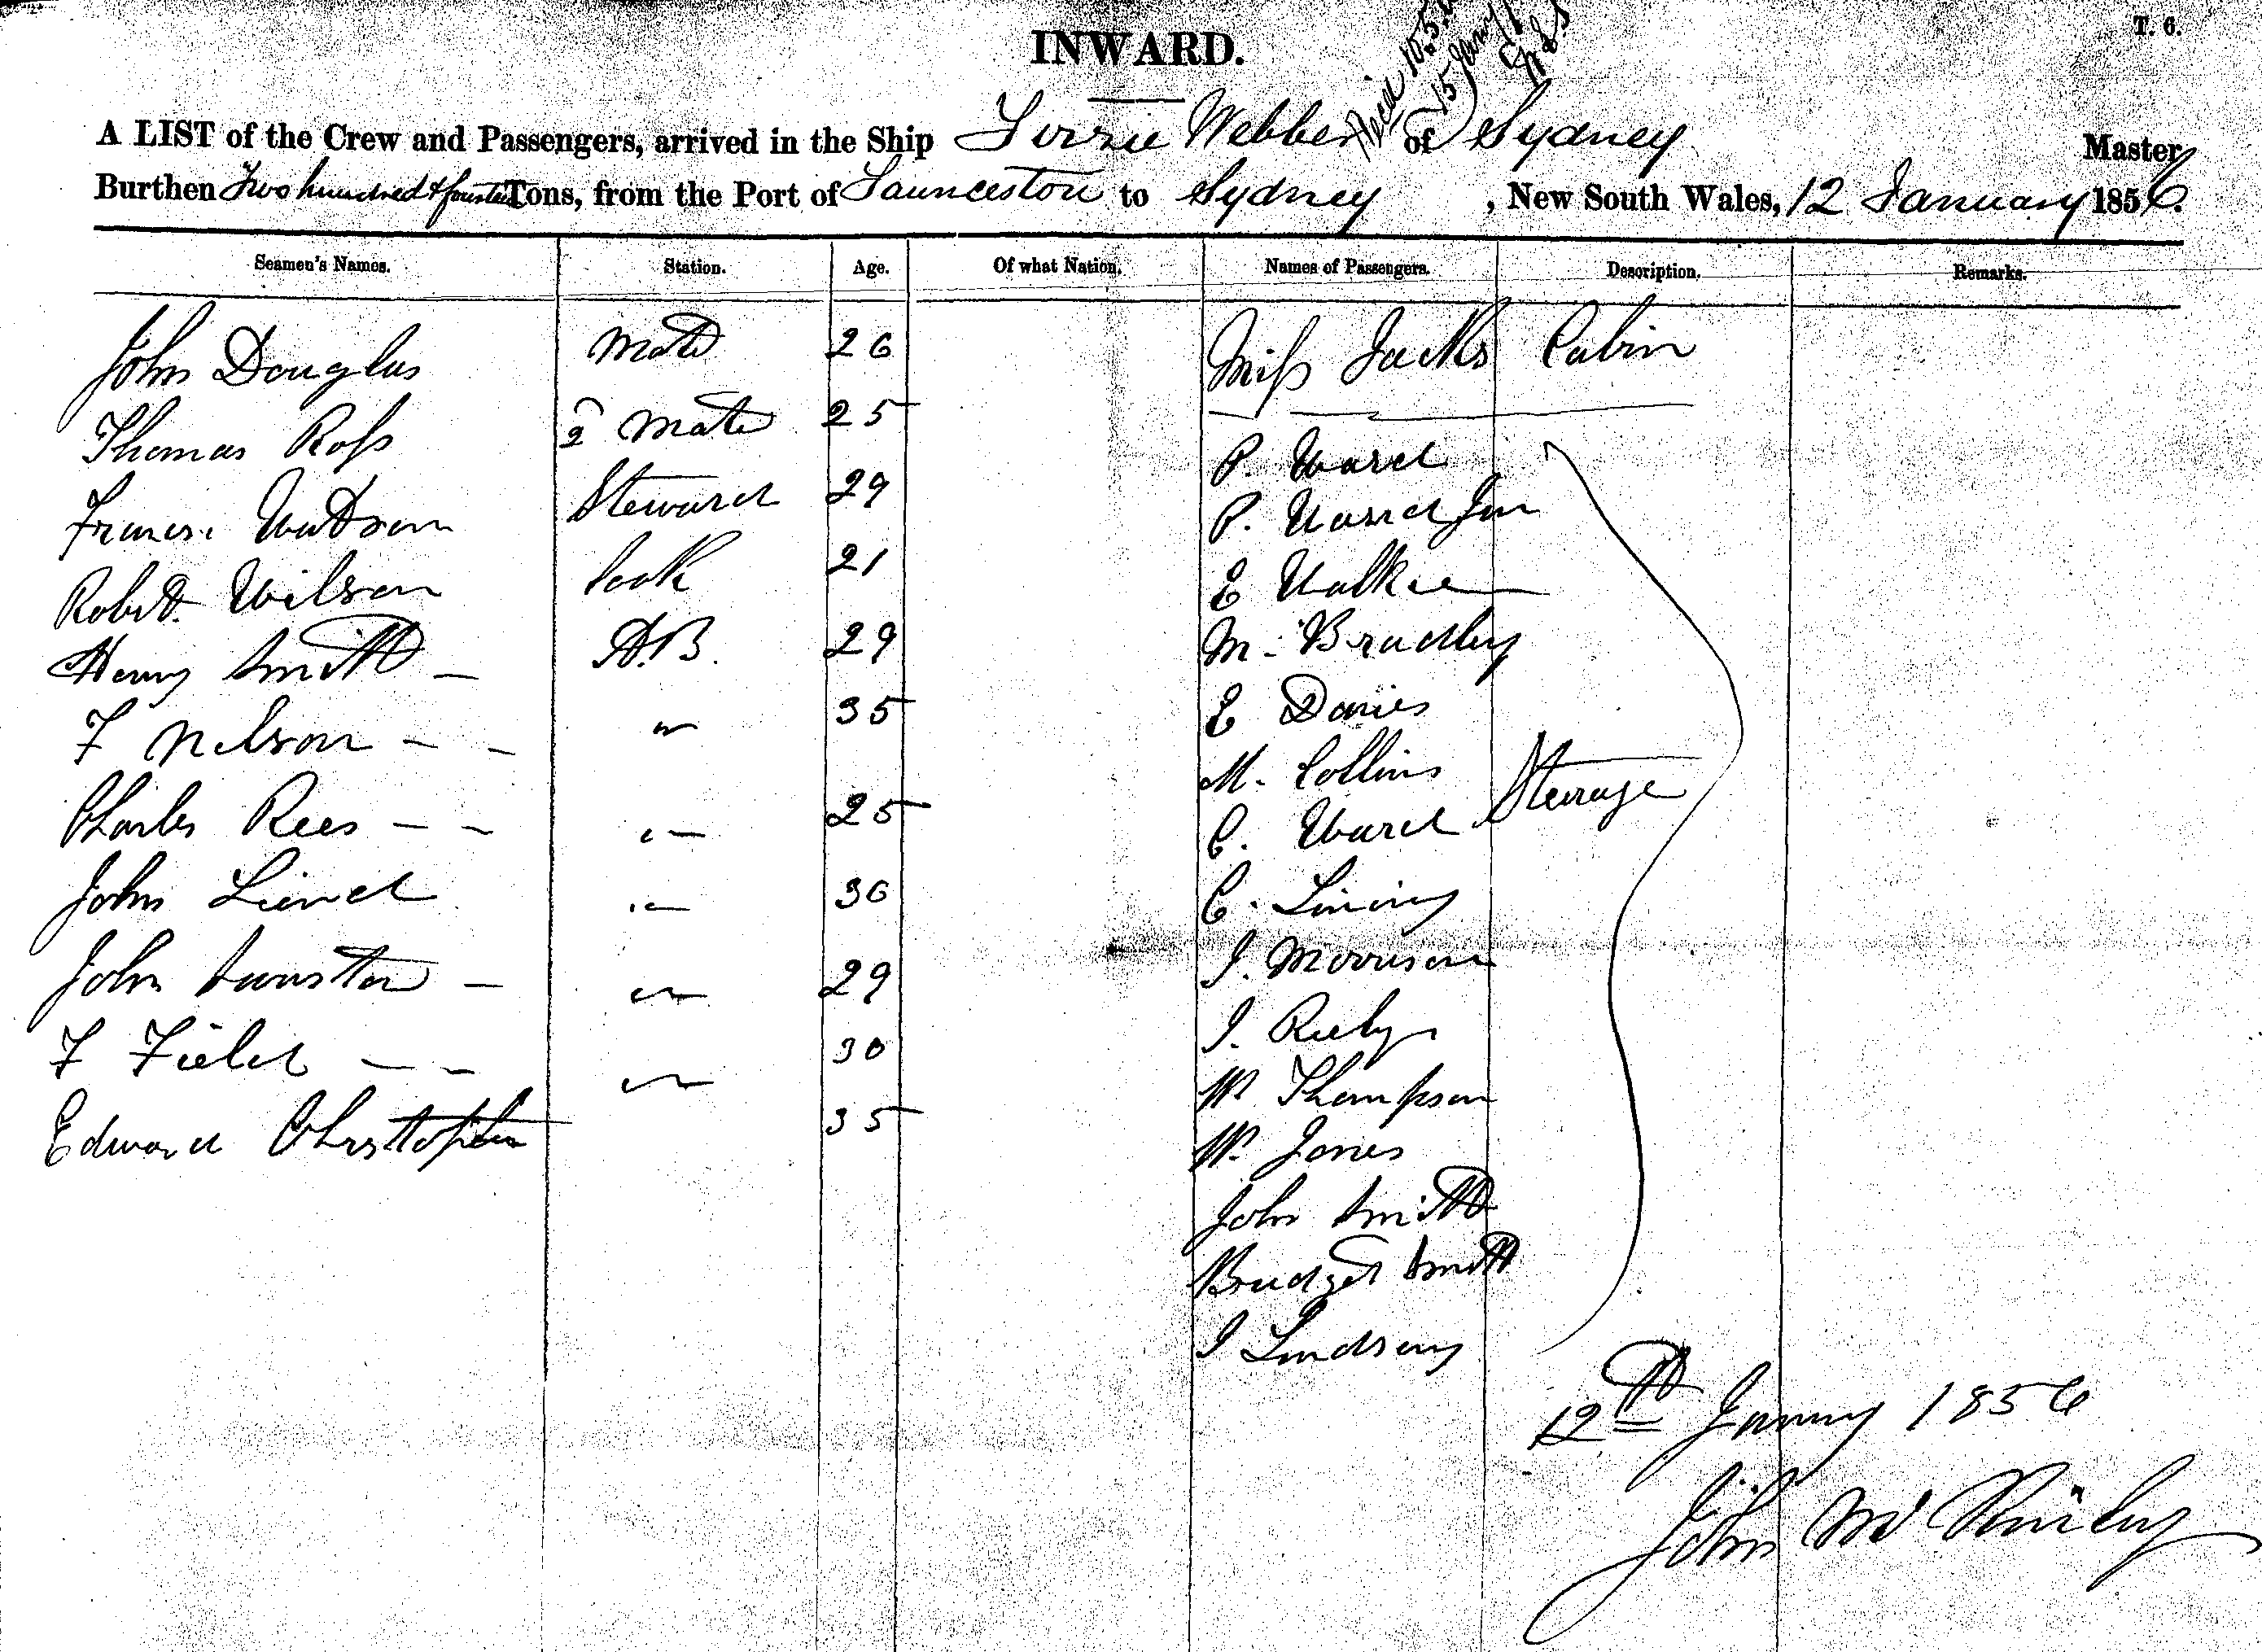 T. 6.
INWARD.
A LIST of the Crew and Passengers, arrived in the Ship Lizzie Webber of Sydney Master
Burthen Two hundred & fourteen Tons, from the Port of Launceston to Sydney , New South Wales, 12 January 1856.
Seamen's Names. Station. Age. Of what Nation. Names of Passengers. Description. Remarks.
John Douglas Mate 26 Miss Jacks Cabin
Thomas Ross 2 Mate 25 P. Ward
Francis Watson Steward 29 P. Ward Jun
Robert Wilson Cook 21 E Walker
Henry Smith A.B. 29 M. Bradley
F Nelson 35 E Davies
Charles Rees 25 M. Collins
C. Ward Steerage
John 36 C.
John 29 J. Morrison
F Field 30 J.
Edward Christopher 35 W Thompson
W. Jones
John Smith
Bridget Smith
J Lindsay
12th January 1856
John Mc